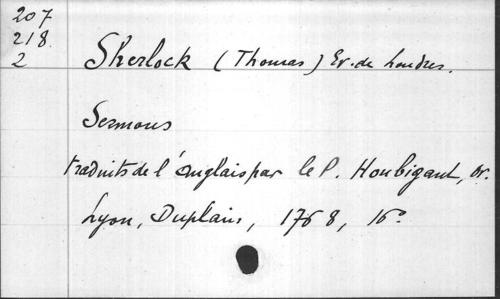 207
218
2
Sherlock (Thomas) Ev. de Londres.
Sermons
traduits de l'anglais par le P. Houbigant, or.
Lyon, Duplain, 1768, 16°